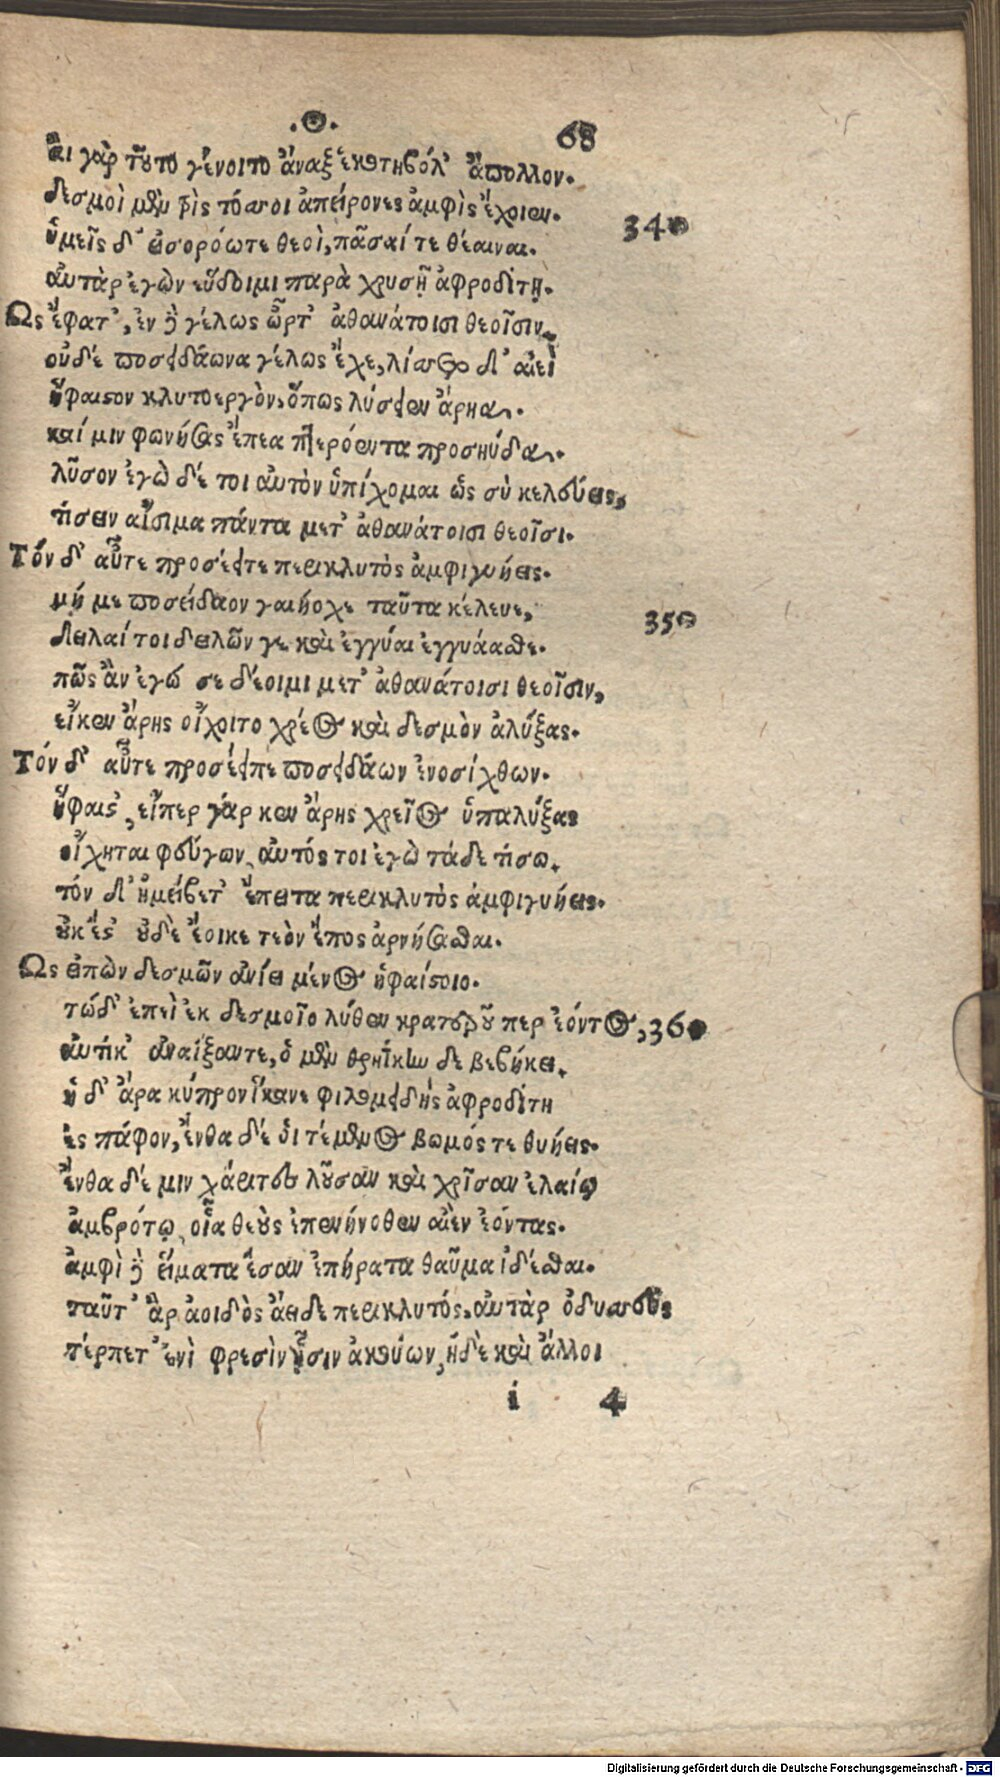 .Θ. 68
αἲ γὰρ τοῦτο γένοιτο ἄναξ ἑκατηβόλ' ἄπολλον.
δεσμοὶ μὲν τρὶς τόσσοι ἀπείρονες ἀμφὶς ἔχοιεν. 340
ὑμεῖς δ' εἰσορόωτε θεοὶ, πᾶσαί τε θέαιναι.
αὐτὰρ ἐγὼν εὕδοιμι παρὰ χρυσῇ ἀφροδίτῃ.
Ὣς ἔφατ', ἐν δὲ γέλως ὦρτ' ἀθανάτοισι θεοῖσιν,
οὐδέ ποσειδάωνα γέλως ἔχε, λίσσετο δ' αἰεὶ
ἥφαιστον κλυτοεργὸν, ὅπως λύσειεν ἄρηα.
καί μιν φωνήσας ἔπεα πτερόεντα προσηύδα.
λῦσον ἐγὼ δέ τοι αὐτὸν ὑπίχομαι ὡς σὺ κελεύεις,
τίσειν αἴσιμα πάντα μετ' ἀθανάτοισι θεοῖσι.
Τόν δ' αὖτε προσέειτε περικλυτὸς ἀμφιγυήεις.
μή με ποσείδαον γαιήοχε ταῦτα κέλευε, 350
δειλαί τοι δειλῶν γε καὶ ἐγγύαι ἐγγυάασθαι.
πῶς ἂν ἐγώ σε δέοιμι μετ' ἀθανάτοισι θεοῖσιν,
εἴκεν ἄρης οἴχοιτο χρέος καὶ δεσμὸν ἀλύξας.
Τόν δ' αὖτε προσέειπε ποσειδάων ἐνοσίχθων.
ἥφαιστ', εἴπερ γάρ κεν ἄρης χρεῖος ὑπαλύξας
οἴχηται φεύγων, αὐτός τοι ἐγὼ τάδε τίσω.
τόν δ' ἠμείβετ' ἔπειτα περικλυτὸς ἀμφιγυήεις.
οὐκ ἔστ' οὐδὲ ἔοικε τεὸν ἔπος ἀρνήσασθαι.
Ὣς εἰπὼν δεσμῶν ἀνίει μένος ἡφαίστοιο.
τώδ' ἐπεὶ ἐκ δεσμοῖο λύθεν κρατεροῦ περ ἐόντος, 360
αὐτίκ' ἀναΐξαντε, ὁ μὲν θρῄκην δε βεβήκει,
ἡ δ' ἄρα κύπρον ἵκανε φιλομειδὴς ἀφροδίτη
ἐς πάφον, ἔνθα δέ οἱ τέμενος βωμός τε θυήεις.
ἔνθα δέ μιν χάριτες λοῦσαν καὶ χρῖσαν ἐλαίῳ
ἀμβρότῳ, οἷα θεοὺς ἐπενήνοθεν αἰὲν ἐόντας.
ἀμφὶ δὲ εἵματα ἕσαν ἐπήρατα θαῦμα ἰδέσθαι.
ταῦτ' ἂρ ἀοιδὸς ἄειδε περικλυτός, αὐτὰρ ὀδυσσεὺς
τέρπετ' ἐνὶ φρεσὶν ᾗσιν ἀκούων, ἠδὲ καὶ ἄλλοι
i 4
Digitalisierung gefördert durch die Deutsche Forschungsgemeinschaft - DFG